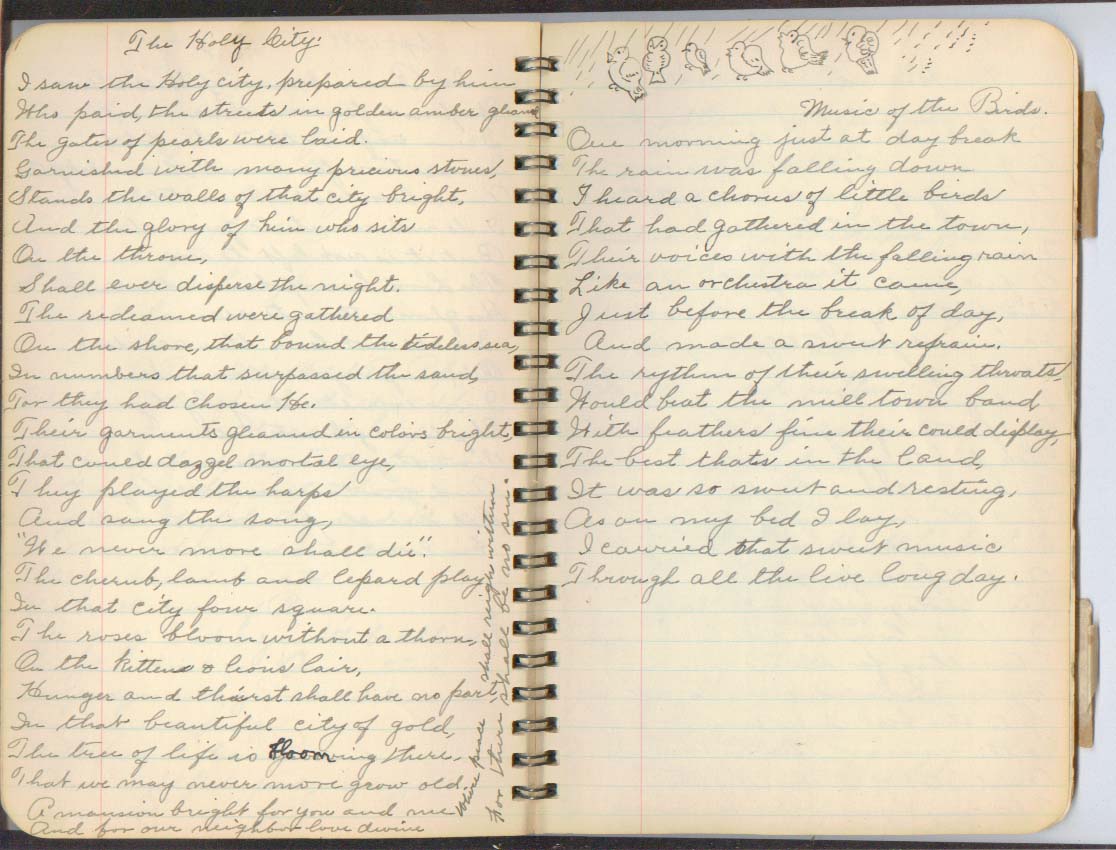 The Holy City.
I saw the Holy city, prepared by him
Who paid, the streets in golden amber gleam
The gates of pearls were laid.
Garnished with many precious stones,
Stands the walls of that city bright,
And the glory of him who sits
On the throne,
Shall ever disperse the night.
The redeamed were gathered
On the shore, that bound the tideless sea,
In numbers that surpassed the sand,
For they had chosen He.
Their garments gleamed in colors bright,
That could dazzel mortal eye,
They played the harps
And sang the song,
"We never more shall die".
The cherub, lamb and lepard play,
In that city four square.
The roses bloom without a thorn,
On the kittens & lions lair,
Hunger and thirst shall have no part,
In that beautiful city of gold,
The tree of life is blooming there.
That we may never more grow old.
A mansion bright for you and me
And for our neighbor love divine
Where peace shall reign within
For there shall be no sin.
Music of the Birds.
One morning just at day break
The rain was falling down
I heard a chorus of little birds
That had gathered in the town,
Their voices with the falling rain
Like an orchestra it came,
Just before the break of day,
And made a sweet refrain.
The rythm of their swelling throats,
Would beat the mill town band
With feathers fine their could display,
The best thats in the land,
It was so sweet and resting,
As on my bed I lay,
I carried that sweet music
Through all the live long day.